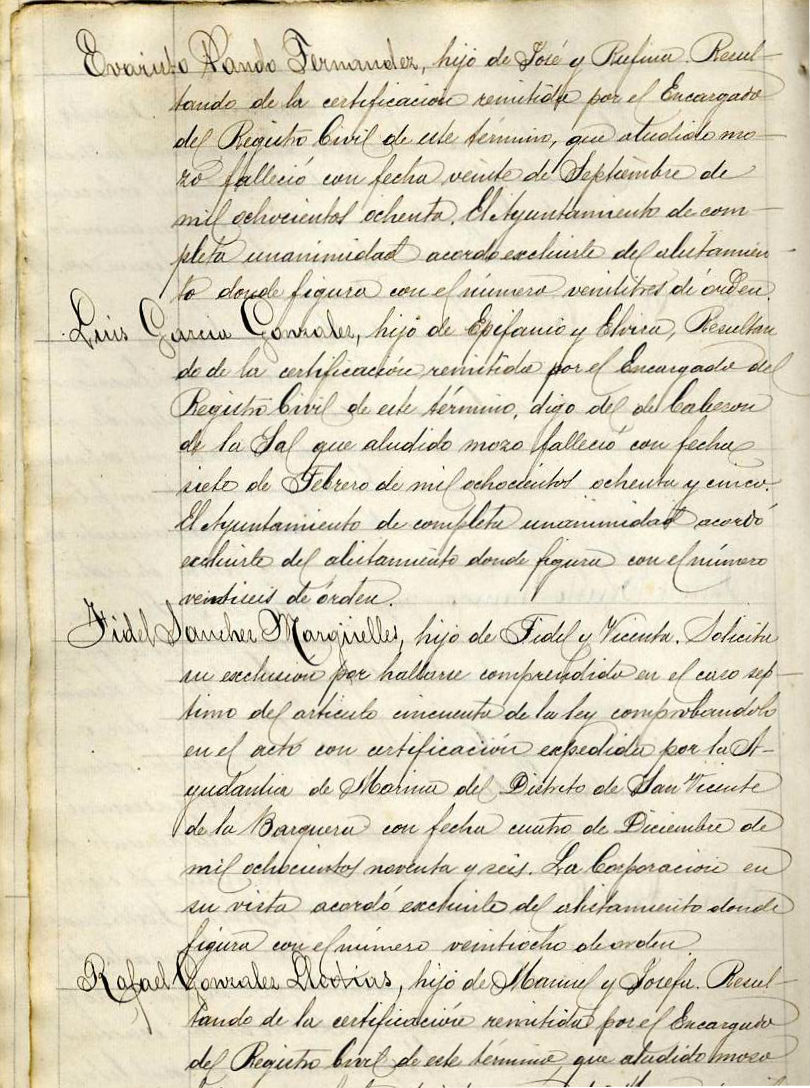 Evaristo Pando Fernandez, hijo de José y Rufina. Resul-
tando de la certificacion remitida por el Encargado
del Registro Civil de este término, que aludido mo-
zo falleció con fecha veinte de Septiembre de
mil ochocientos ochenta. El Ayuntamiento de com-
pleta unanimidad acordo excluirle del alistamien
to donde figura con el número veintitres de órden.
Luis Garcia Gonzalez, hijo de Epifanio y Elvira, Resultan
do de la certificación remitida por el Encargado del
Registro Civil de este término, digo del de Cabezon
de la Sal que aludido mozo falleció con fecha
siete de Febrero de mil ochocientos ochenta y cinco.
El Ayuntamiento de completa unanimidad acordó
excluirle del alistamiento donde figura con el número
veintiseis de órden.
Fidel Sanchez Margüelles, hijo de Fidel y Vicenta. Solicita
su exclusión por hallarse comprendido en el caso sep-
timo del articulo cincuenta de la ley comprobandolo
en el acto con certificación expedida por la A-
yudantia de Marina del Distrito de San Vicente
de la Barquera con fecha cuatro de Diciembre de
mil ochocientos noventa y seis. La Corporacion en
su vista acordó excluirle del alistamiento donde
figura con el número veintiocho de orden
Rafael Gonzalez, hijo de Manuel y Josefa. Resul-
tando de la certificación remitida por el Encargado
del Registro Civil de este término, que aludido mozo